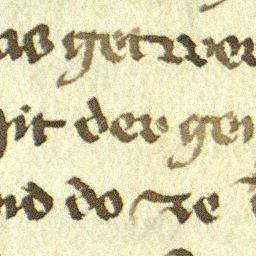 as getwer
it der gen
nd do ze